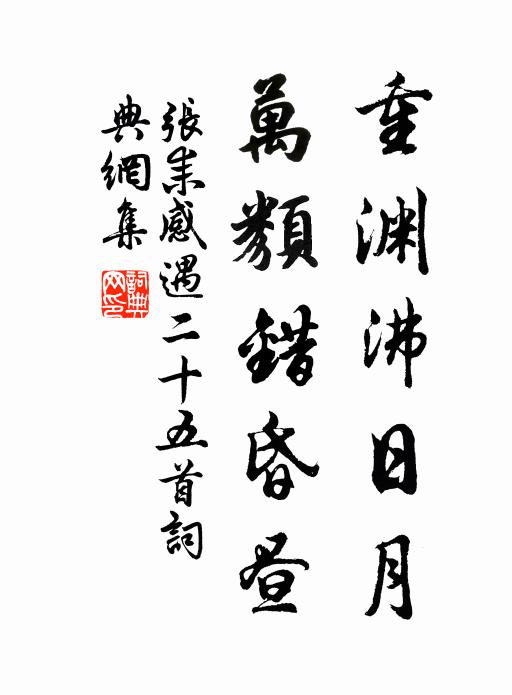 重渊沸日月
萬類錯昏昼
張耒感遇二十五首詞
典網集
詞典網印